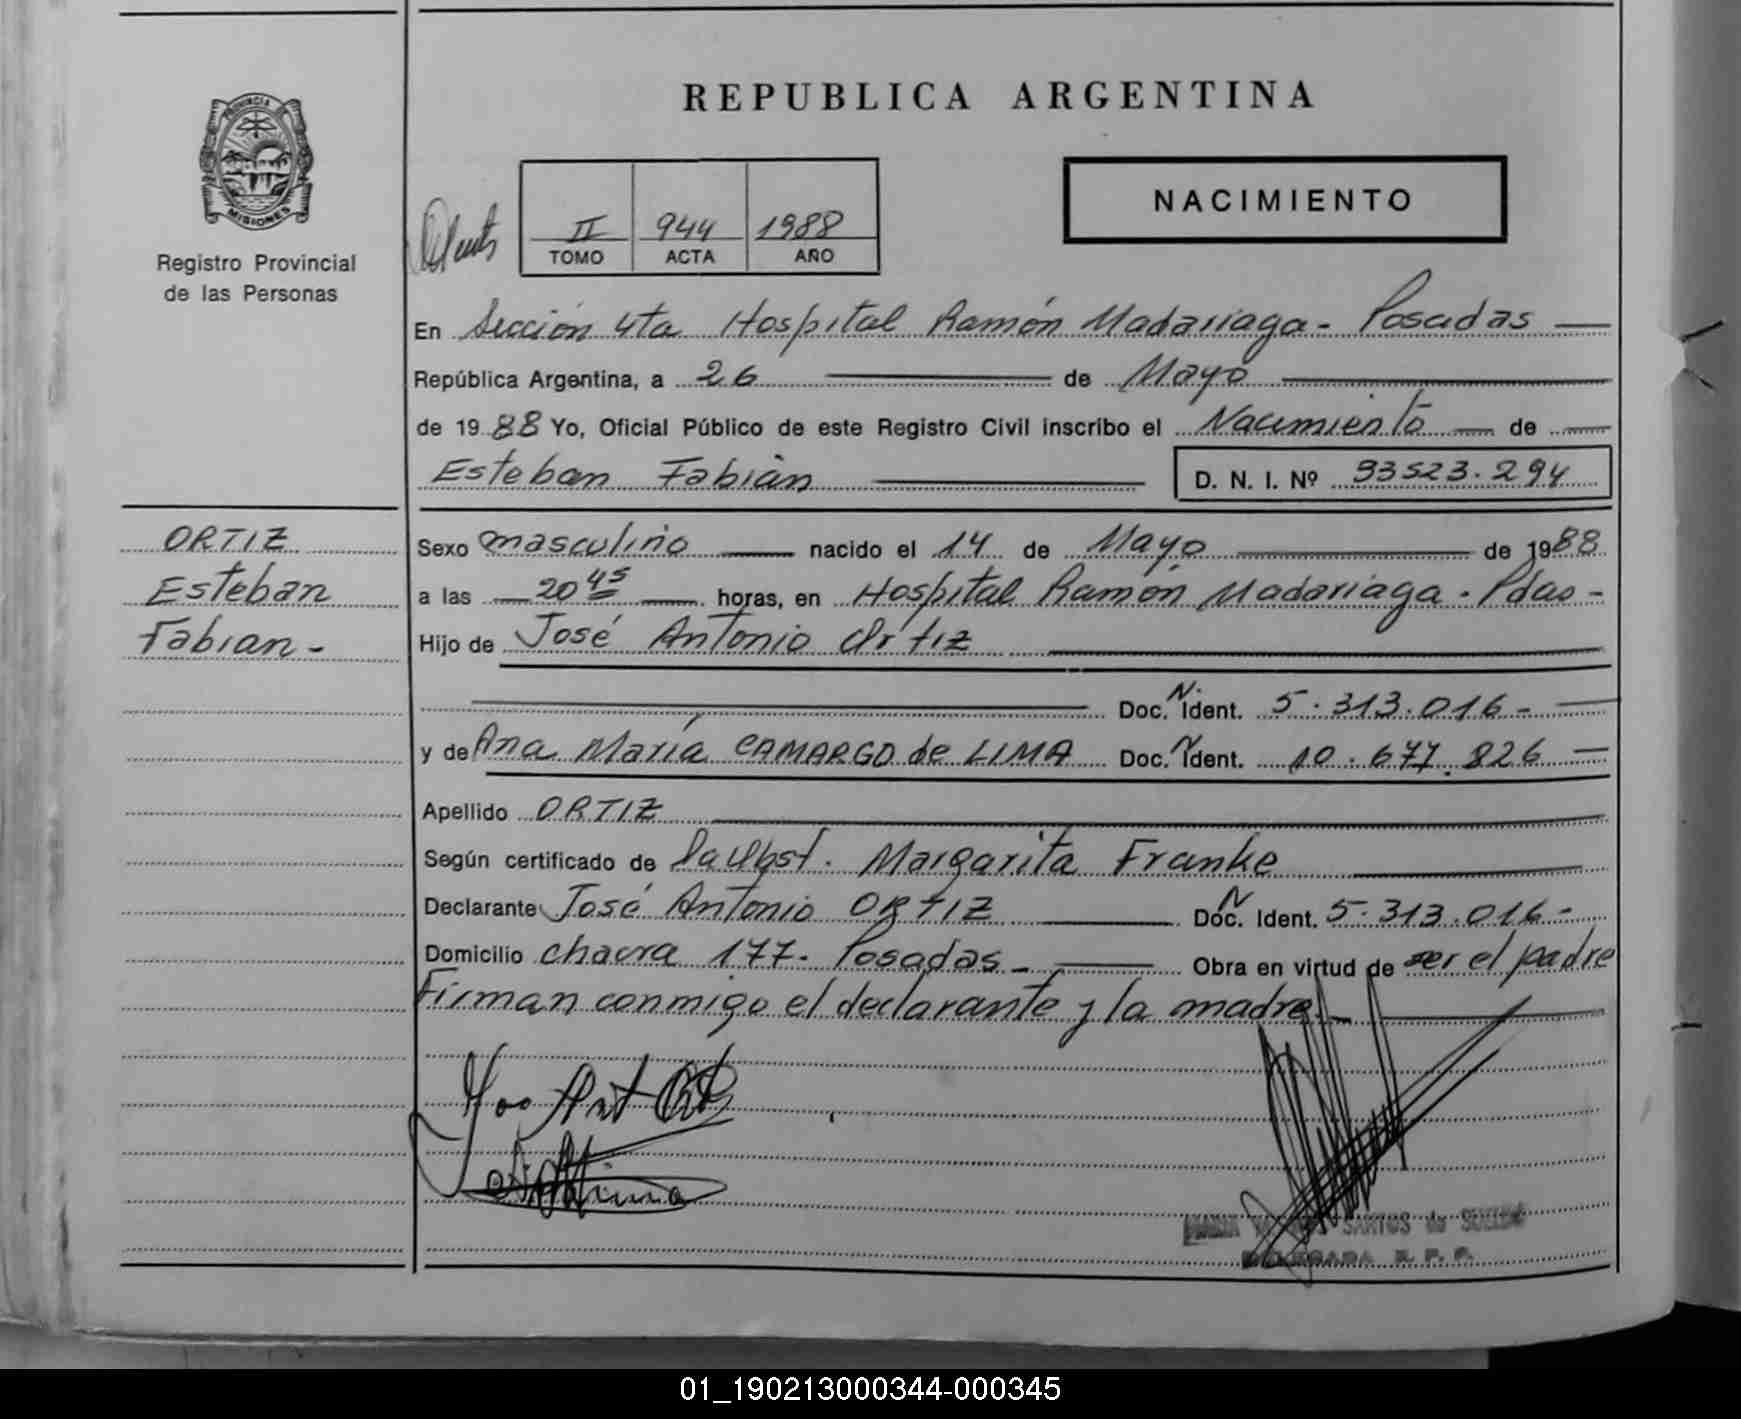 REPUBLICA ARGENTINA
PROVINCIA
MISIONES
Registro Provincial
de las Personas
NACIMIENTO
II 944 1988
TOMO ACTA AÑO
En Sección 4ta Hospital Ramón Madariaga - Posadas
República Argentina, a 26 de Mayo
de 1988 Yo, Oficial Público de este Registro Civil inscribo el Nacimiento de
Esteban Fabián D. N. I. Nº 33523.294
ORTIZ
Esteban
Fabian -
Sexo masculino nacido el 14 de Mayo de 1988
a las 20 45 horas, en Hospital Ramón Madariaga - Pdas -
Hijo de José Antonio Ortiz
Doc. N. Ident. 5.313.016 -
y de Ana María CAMARGO de LIMA Doc. N Ident. 10.677.826
Apellido ORTIZ
Según certificado de la Obst. Margarita Franke
Declarante José Antonio ORTIZ Doc. N Ident. 5.313.016 -
Domicilio chacra 177 - Posadas - Obra en virtud de ser el padre
Firman conmigo el declarante y la madre. -
SANTOS de
DELEGADA R. P. P.
01_190213000344-000345